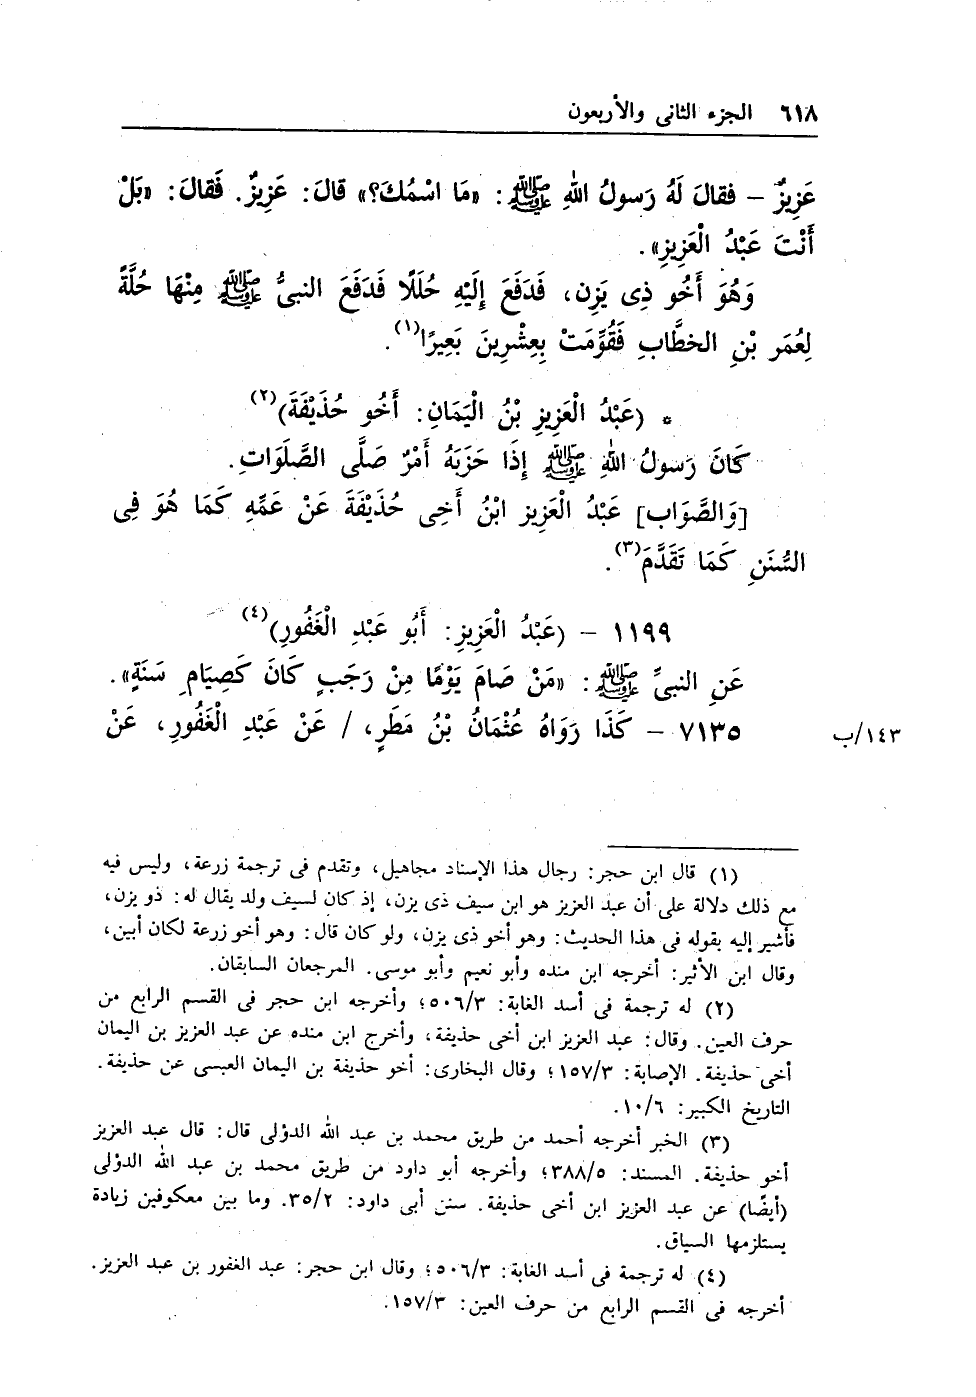 ٦١٨ الجزء الثانى والأربعون
عَزِيزٌ – فقالَ لَهُ رَسولُ اللهِ ﷺ : «مَا اسْمُكَ؟» قالَ: عَزِيزٌ. فَقالَ: «بَلْ
أَنْتَ عَبْدُ الْعَزِيزِ».
وَهُوَ أَخُو ذِى يَزِن، فَدَفَعَ إِلَيْهِ حُلَلًا فَدَفَعَ النبىُّ ﷺ مِنْهَا حُلَّةً
لِعُمَر بْنِ الخطَّابِ فَقُوِّمَتْ بِعِشْرِينَ بَعِيرًا(١).
* (عَبْدُ الْعَزِيزِ بْنُ الْيَمَانِ: أَخُو حُذَيْفَةَ)(٢)
كَانَ رَسولُ اللهِ ﷺ إِذَا حَزَبَهُ أَمْرٌ صَلَّى الصَّلَوَاتِ.
[وَالصَّوَاب] عَبْدُ الْعَزِيز ابْنُ أَخِى حُذَيْفَةَ عَنْ عَمِّهِ كَمَا هُوَ فِى
السُّنَنِ كَمَا تَقَدَّمَ(٣).
١١٩٩ – (عَبْدُ الْعَزِيزِ: أَبُو عَبْدِ الْغَفُورِ)(٤)
عَنِ النبىِّ ﷺ : «مَنْ صَامَ يَوْمًا مِنْ رَجَبٍ كَانَ كَصِيَامِ سَنَةٍ».
٧١٣٥ – كَذَا رَوَاهُ عُثْمَانُ بْنُ مَطَرٍ، / عَنْ عَبْدِ الْغَفُورِ، عَنْ
١٤٣/ب
(١) قال ابن حجر: رجال هذا الإسناد مجاهيل، وتقدم فى ترجمة زرعة، وليس فيه
مع ذلك دلالة على أن عبد العزيز هو ابن سيف ذى يزن، إذ كان لسيف ولد يقال له: ذو يزن،
فأشير إليه بقوله فى هذا الحديث: وهو أخو ذى يزن، ولو كان قال: وهو أخو زرعة لكان أبين،
وقال ابن الأثير: أخرجه ابن منده وأبو نعيم وأبو موسى. المرجعان السابقان.
(٢) له ترجمة فى أسد الغابة: ٥٠٦/٣؛ وأخرجه ابن حجر فى القسم الرابع من
حرف العين. وقال: عبد العزيز ابن أخى حذيفة، وأخرج ابن منده عن عبد العزيز بن اليمان
أخى حذيفة. الإصابة: ١٥٧/٣؛ وقال البخارى: أخو حذيفة بن اليمان العبسى عن حذيفة.
التاريخ الكبير: ١٠/٦.
(٣) الخبر أخرجه أحمد من طريق محمد بن عبد الله الدؤلى قال: قال عبد العزيز
أخو حذيفة. المسند: ٣٨٨/٥؛ وأخرجه أبو داود من طريق محمد بن عبد الله الدؤلى
(أيضًا) عن عبد العزيز ابن أخى حذيفة. سنن أبى داود: ٣٥/٢. وما بين معكوفين زيادة
يستلزمها السياق.
(٤) له ترجمة فى أسد الغابة: ٥٠٦/٣؛ وقال ابن حجر: عبد الغفور بن عبد العزيز.
أخرجه فى القسم الرابع من حرف العين: ١٥٧/٣.